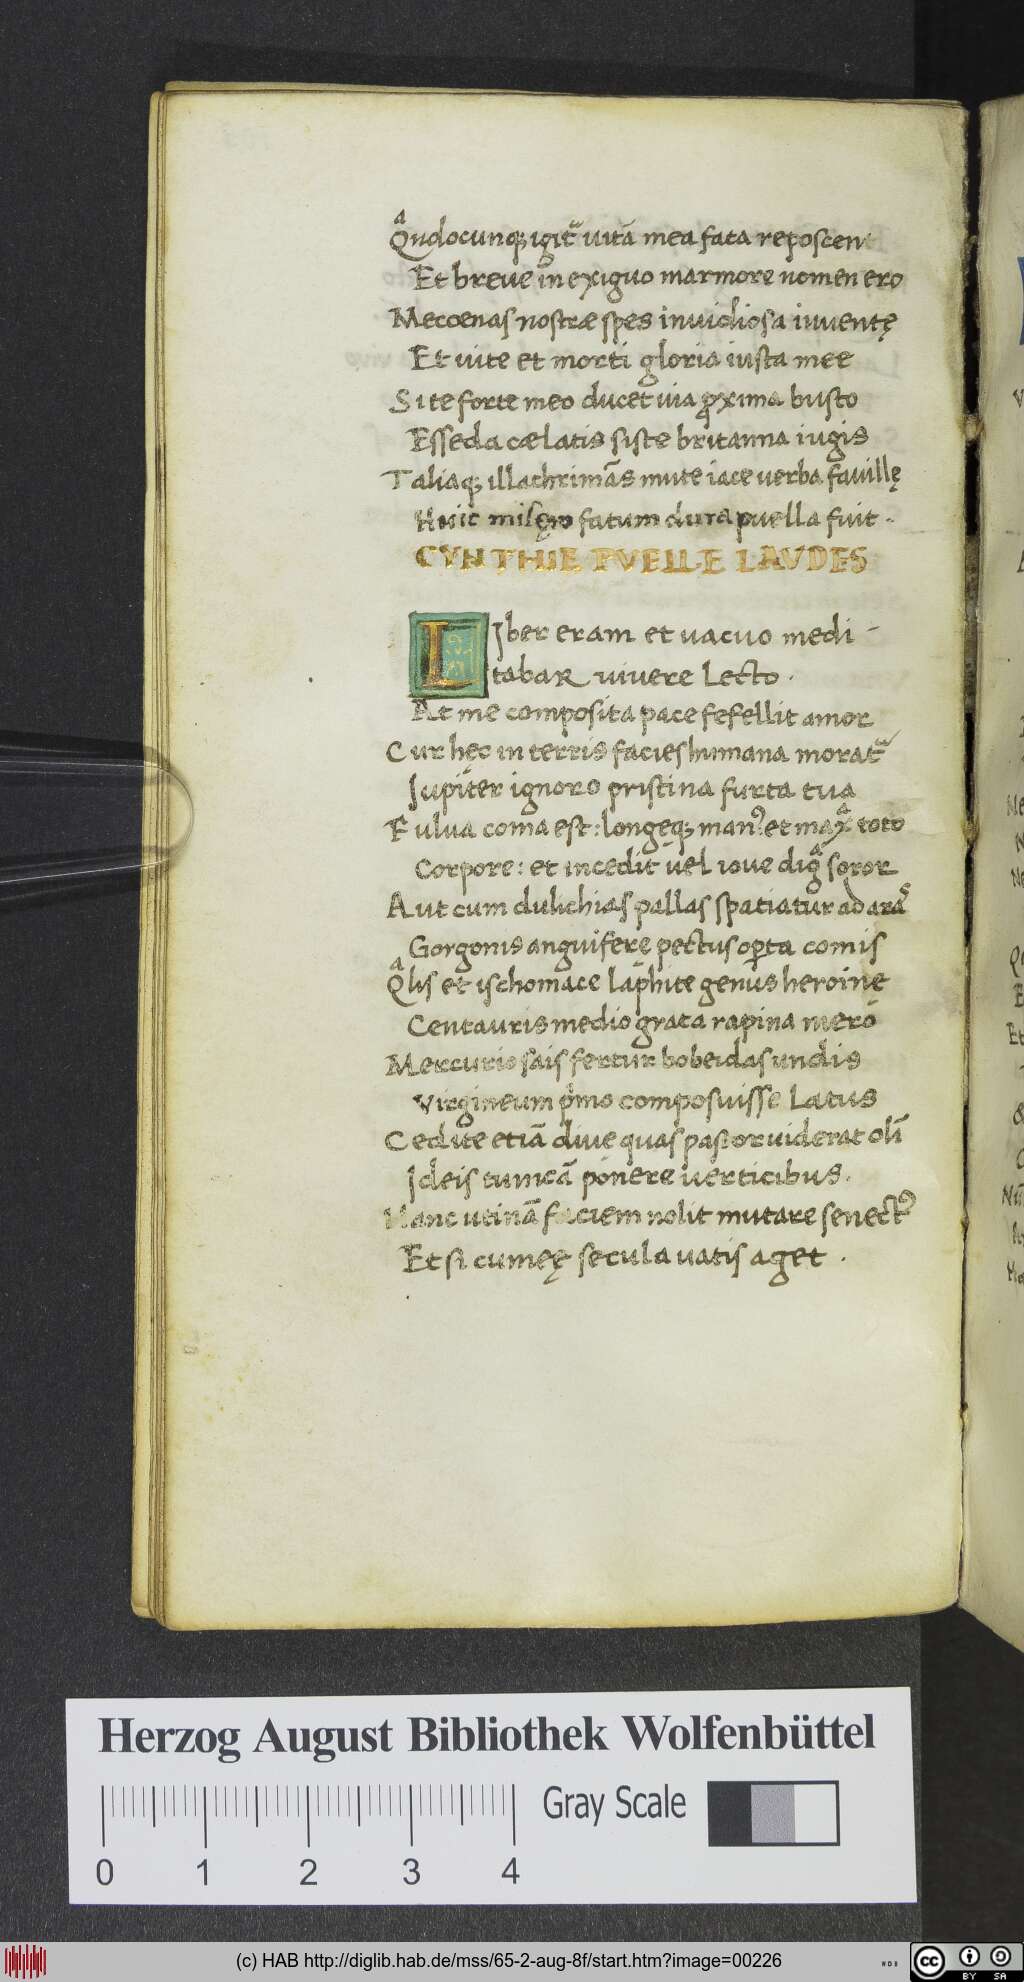 Qᵃndocunq; igit᷑ uitā mea fata reposcent
Et breue in exiguo marmore nomen ero
Mecoenas nostræ spes inuidiosa iuuentę
Et uite et morti gloria iusta mee
Si te forte meo ducet uia ꝓxima busto
Esseda cælatis siste britanna iugis
Taliaq; illachrimās mute iace uerba fauillę
Huic misęro fatum dura puella fuit ·
CYNTHIE PVELLE LAVDES
LIber eram et uacuo medi-
tabaR vivere Lecto ·
At me composita pace fefellit amor
Cur hęc in terris facies humana morat᷑
Jupiter ignoro pristina furta tua
Fulua coma est: longęq; manꝰ: et maxᵃ toto
Corpore: et incedit uel ioue digᵃ soror
Aut cum dulichias pallas spatiatur ad araˢ
Gorgonis anguiferę pectus oꝑta comis
Qᵃlis et ischomace laphite genus heroinę
Centauris medio grata rapina mero
Mercurio sais fertur bobeidas undis
Virgineum pⁱmo composuisse Latus
Cedite etiā diue quas pastor uiderat oli᷑
Ideis tunicā ponere uerticibus.
Hanc utinā faciem nolit mutare senectꝰ
Et si cumeę secula uatis aget .
Herzog August Bibliothek Wolfenbüttel
Gray Scale
0 1 2 3 4
(c) HAB http://diglib.hab.de/mss/65-2-aug-8f/start.htm?image=00226
WDB
CC BY SA